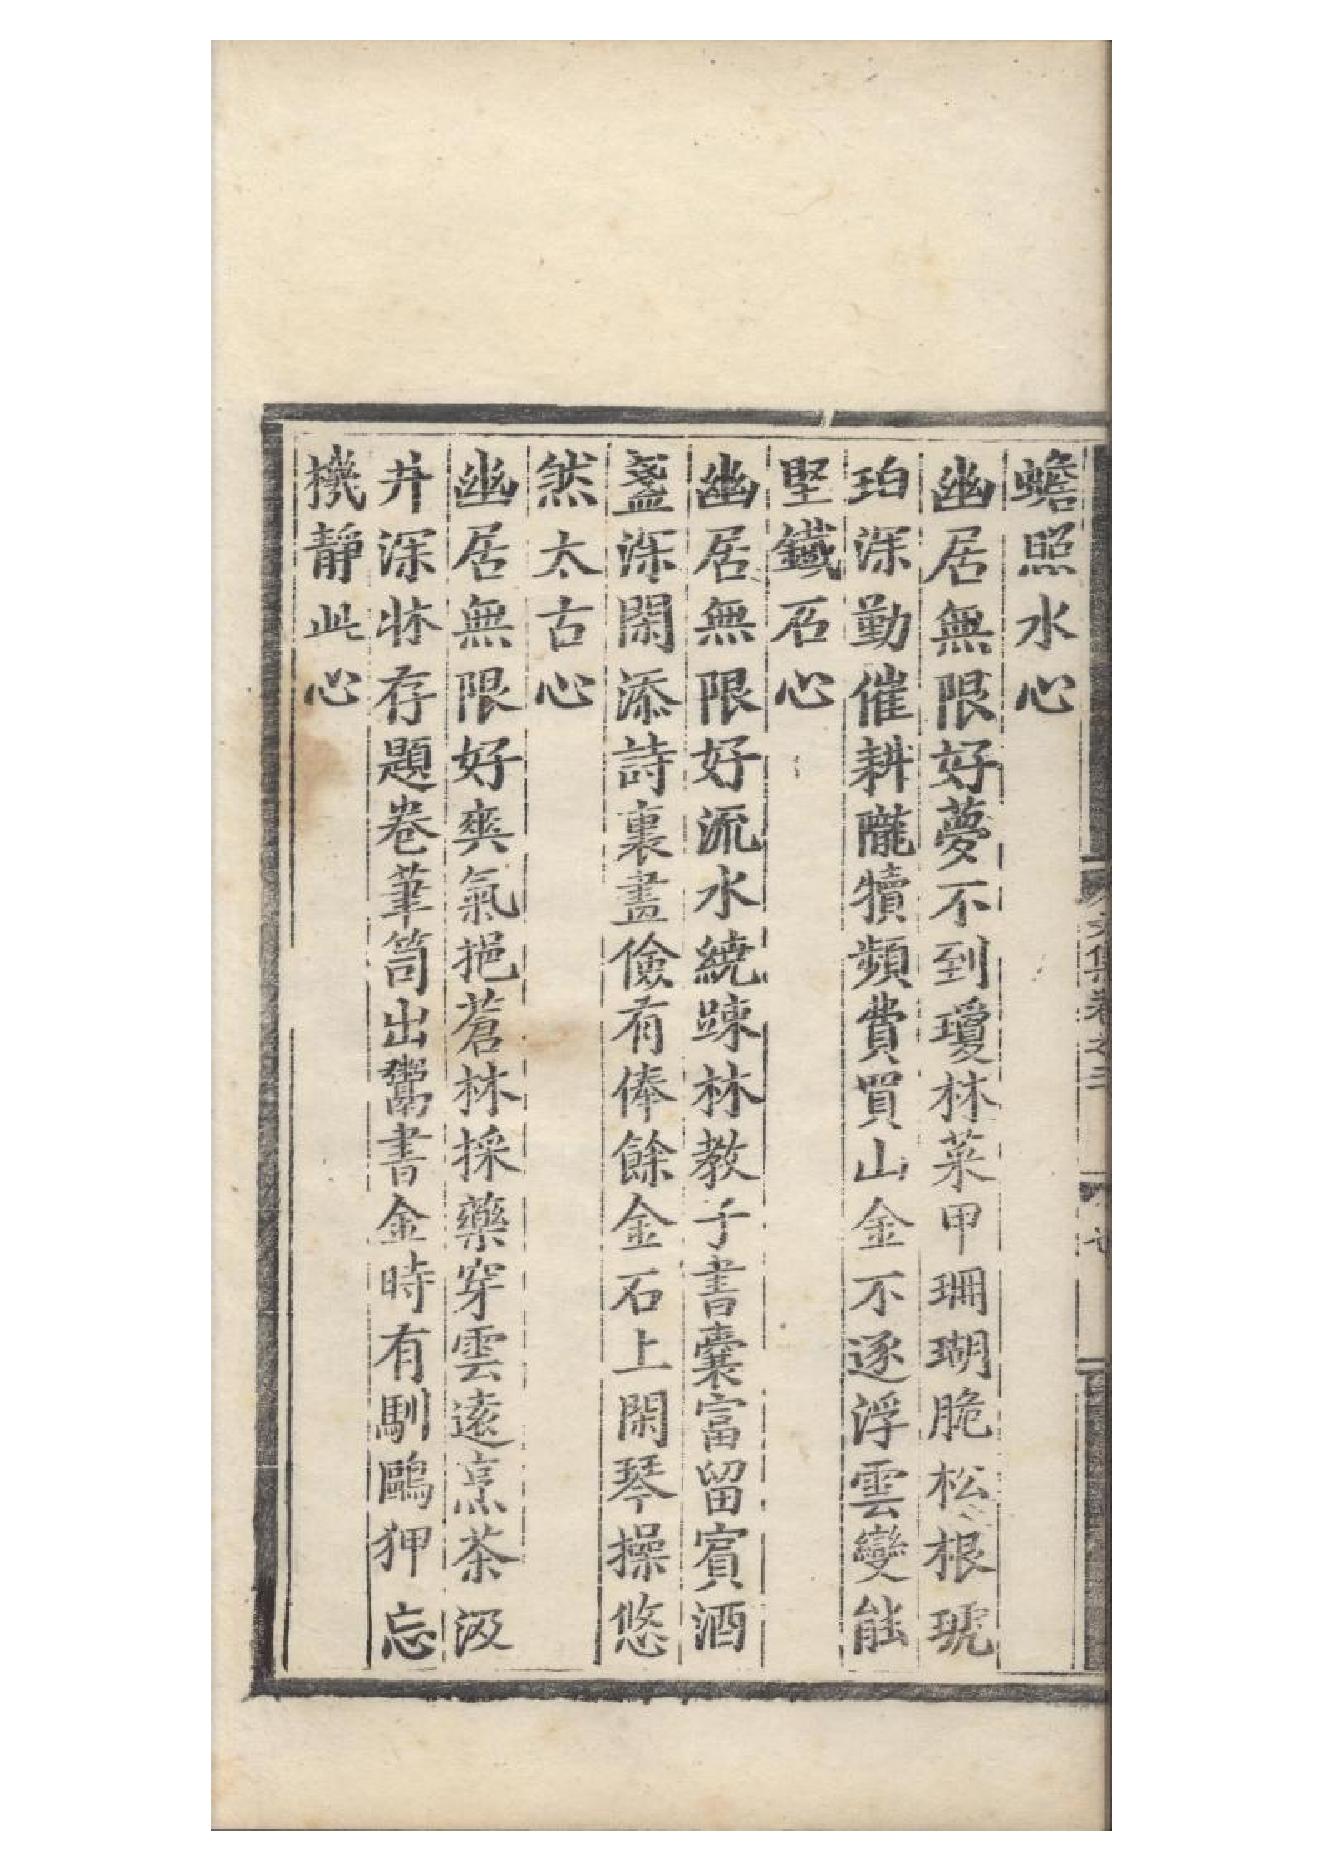 蟾照水心
幽居無限好夢不到瓊林菜甲珊瑚脆松根琥
珀深勤催耕隴犢頻費買山金不逐浮雲變能
堅鐵石心
幽居無限好流水繞踈林教子書囊富留賓酒
盞深閑添詩裏畫儉有俸餘金石上閑琴操悠
然太古心
幽居無限好爽氣挹蒼林採藥穿雲遠烹茶汲
井深牀存題卷筆笥出鬻書金時有馴鷗狎忘
機靜此心